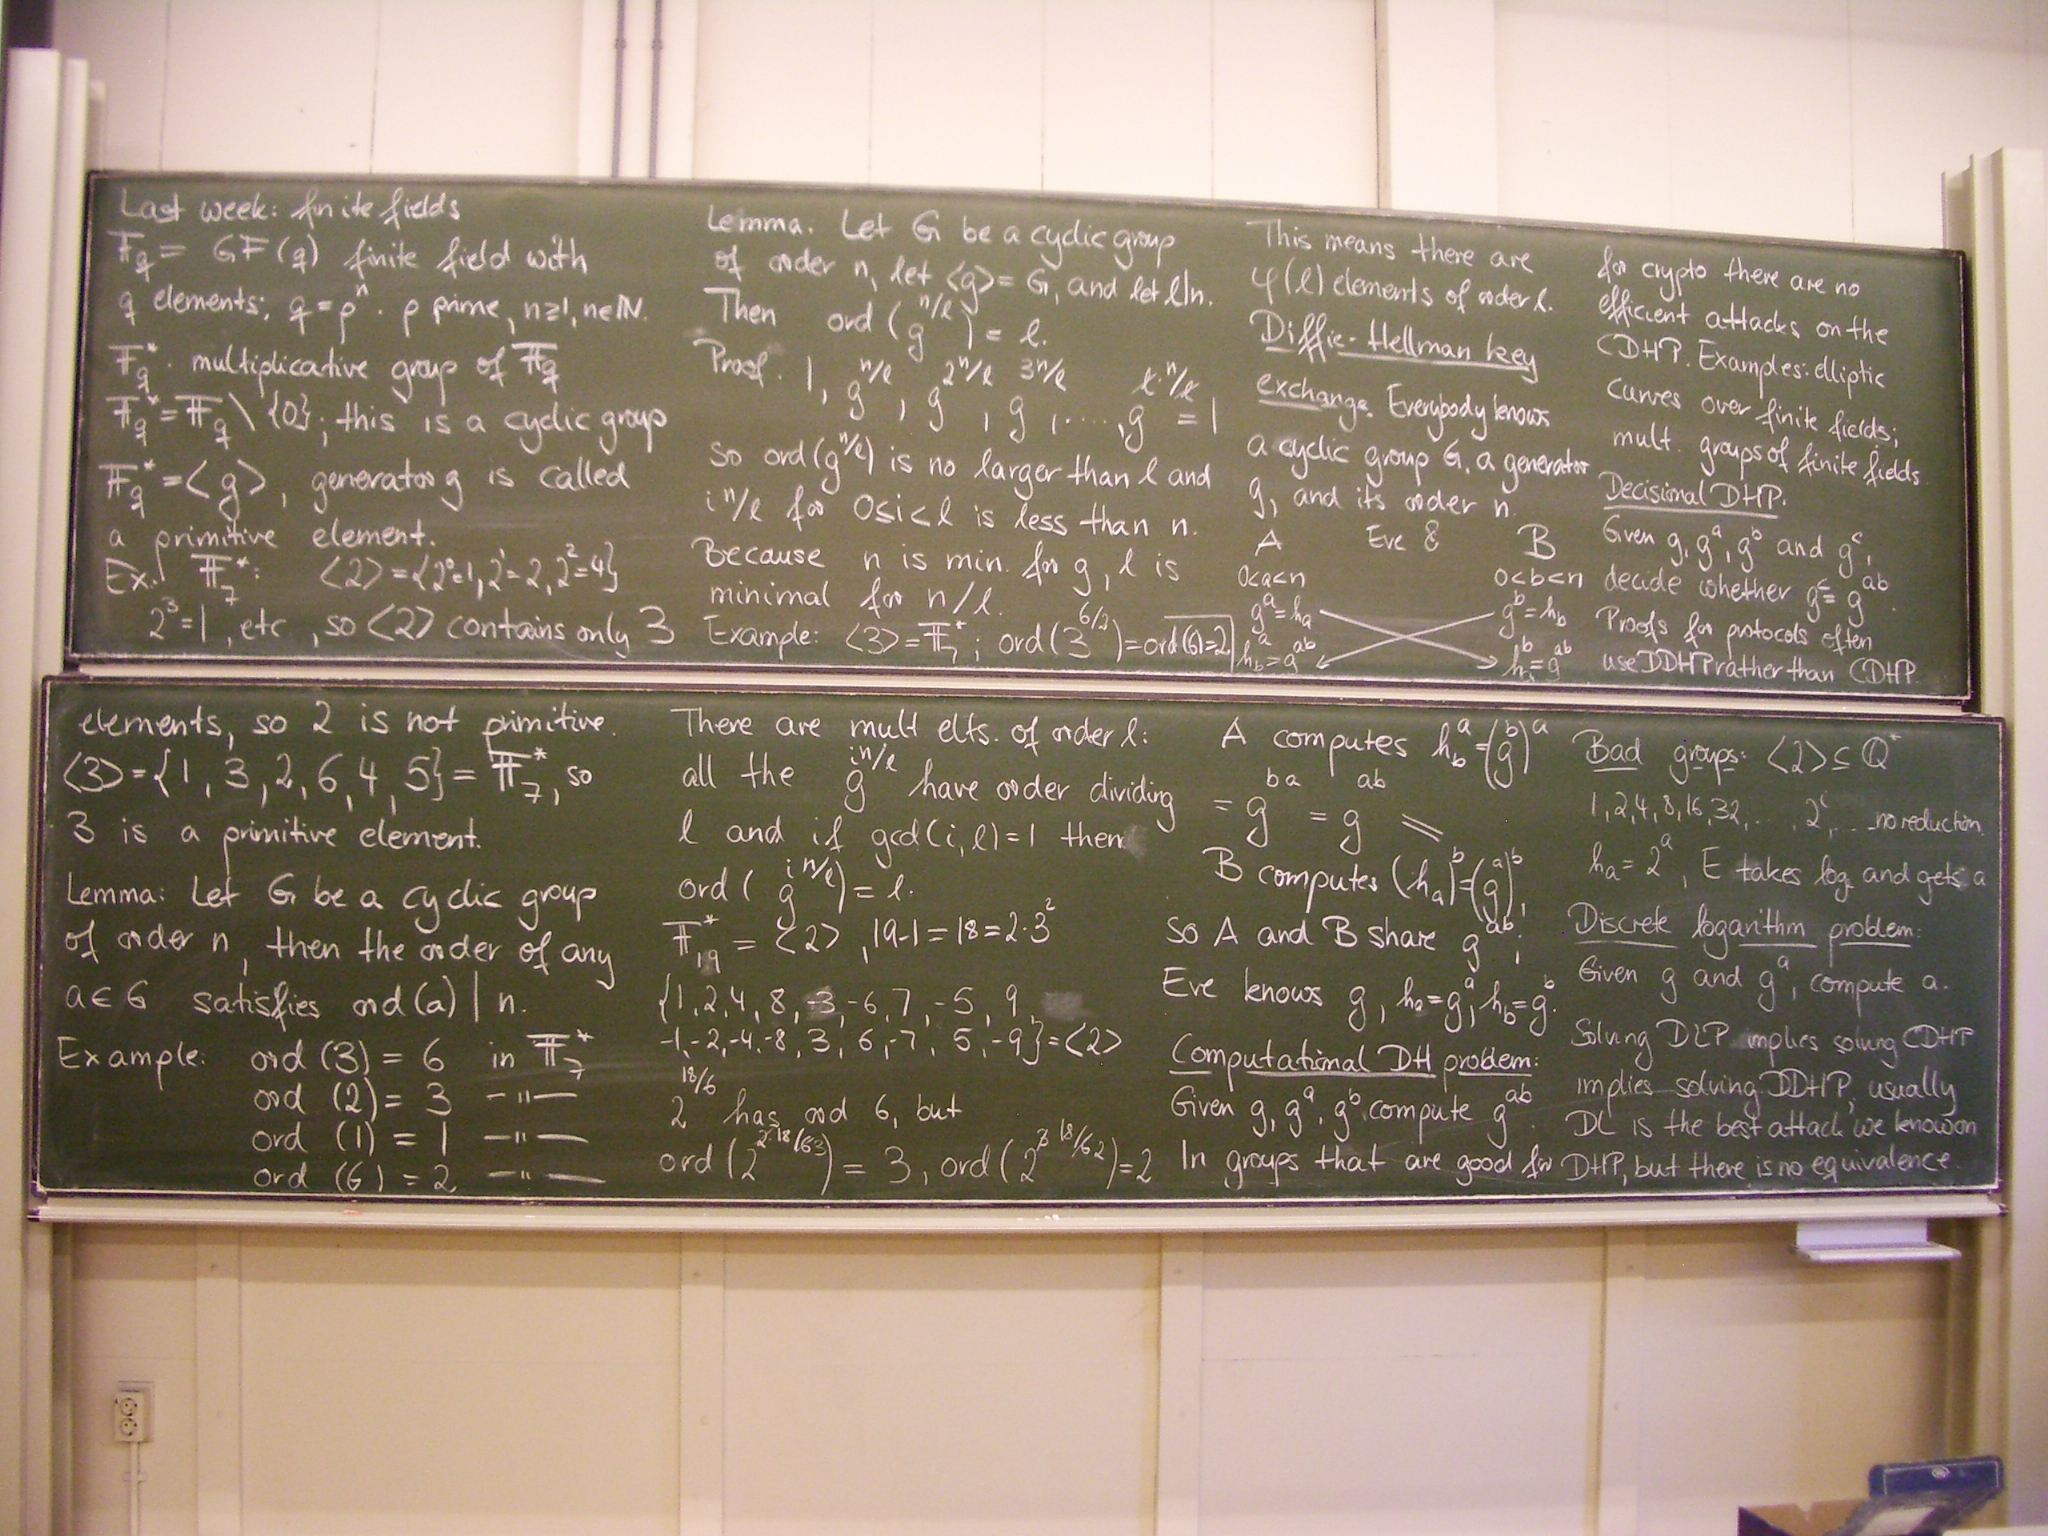 Last week: finite fields
𝔽_q = GF(q) finite field with
q elements; q = p^n. p prime, n≥1, n∈ℕ.
𝔽_q^*. multiplicative group of 𝔽_q
𝔽_q^* = 𝔽_q \ {0}; this is a cyclic group
𝔽_q^* = <g>, generator g is called
a primitive element.
Ex.: 𝔽_7^*: <2> = {2^0=1, 2^1=2, 2^2=4}
2^3=1, etc, so <2> contains only 3
elements, so 2 is not primitive.
<3> = {1, 3, 2, 6, 4, 5} = 𝔽_7^*, so
3 is a primitive element.
Lemma: Let G be a cyclic group
of order n, then the order of any
a∈G satisfies ord(a) | n.
Example: ord (3) = 6 in 𝔽_7^*
ord (2) = 3 —"—
ord (1) = 1 —"—
ord (6) = 2 —"—
Lemma. Let G be a cyclic group
of order n, let <g> = G, and let l|n.
Then ord (g^{n/l}) = l.
Proof. 1, g^{n/l}, g^{2n/l}, g^{3n/l}, ...., g^{l·n/l} = 1
so ord(g^{n/l}) is no larger than l and
i n/l for 0≤i<l is less than n.
Because n is min. for g, l is
minimal for n/l.
Example: <3> = 𝔽_7^*; ord (3^{6/2}) = ord(6)=2
There are mult elts. of order l:
all the g^{i n/l} have order dividing
l and if gcd(i,l)=1 then
ord (g^{i n/l}) = l.
𝔽_19^* = <2>, 19-1 = 18 = 2·3^2
{1, 2, 4, 8, -3, -6, 7, -5, 9,
-1, -2, -4, -8, 3, 6, -7, 5, -9} = <2>
2^{18/6} has ord 6, but
ord (2^{2·18/6 3}) = 3, ord (2^{3·18/6 2}) = 2
This means there are
φ(l) elements of order l.
Diffie-Hellman key
exchange. Everybody knows
a cyclic group G, a generator
g, and its order n.
A Eve B
0<a<n 0<b<n
g^a = h_a g^b = h_b
h_b^a = g^{ab} h_a^b = g^{ab}
A computes h_b^a = (g^b)^a
= g^{ba} = g^{ab}
B computes (h_a)^b = (g^a)^b,
so A and B share g^{ab};
Eve knows g, h_a = g^a, h_b = g^b.
Computational DH problem:
Given g, g^a, g^b compute g^{ab}.
In groups that are good for
for crypto there are no
efficient attacks on the
CDHP. Examples: elliptic
curves over finite fields;
mult. groups of finite fields.
Decisional DHP.
Given g, g^a, g^b and g^c,
decide whether g^c = g^{ab}.
Proofs for protocols often
use DDHP rather than CDHP.
Bad groups: <2> ⊆ ℚ^*
1, 2, 4, 8, 16, 32, ..., 2^i, ... no reduction.
h_a = 2^a, E takes log_2 and gets a
Discrete logarithm problem:
Given g and g^a, compute a.
Solving DLP implies solving CDHP
implies solving DDHP, usually
DL is the best attack we know on
DHP, but there is no equivalence.